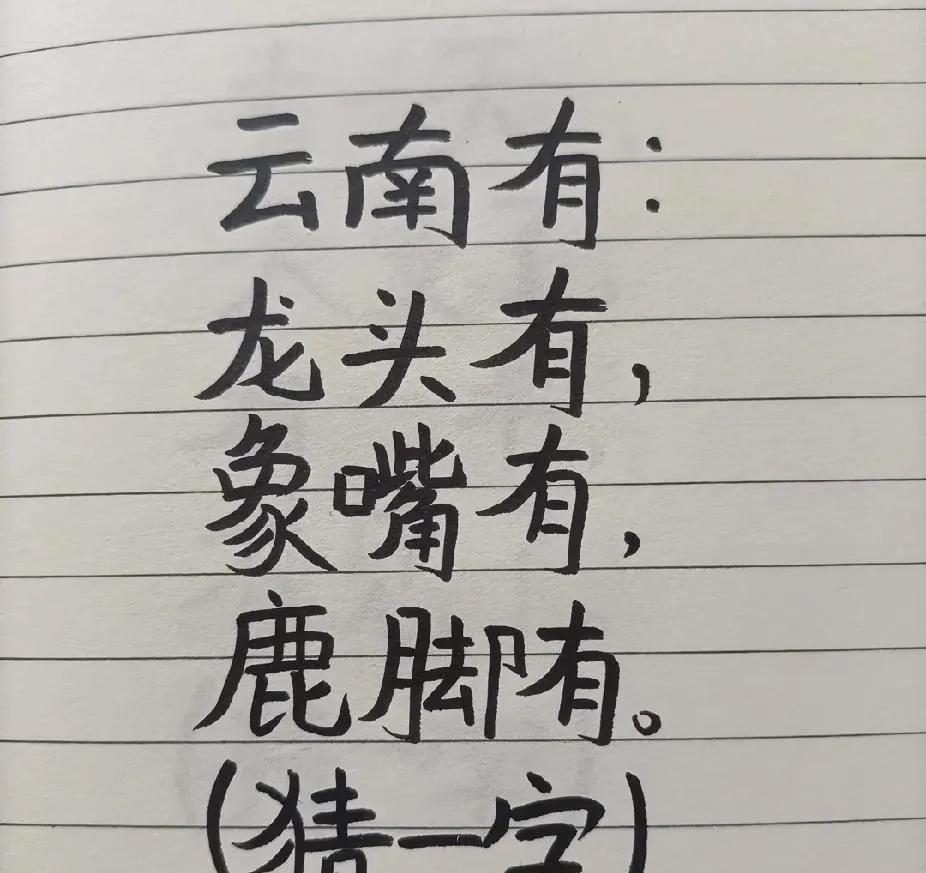 云南有:
龙头有,
象嘴有,
鹿脚有。
(猜一字)